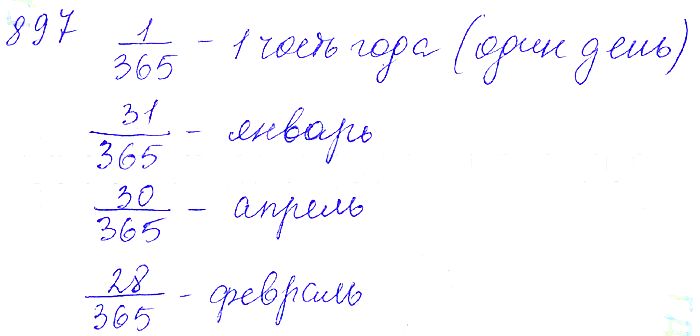 897 1/365 - 1 часть года (один день)
31/365 - январь
30/365 - апрель
28/365 - февраль